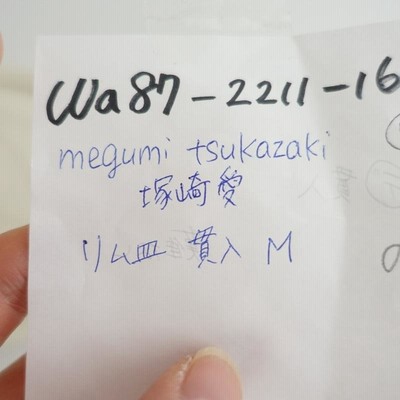 Wa87-2211-16
megumi tsukazaki
塚崎愛
リム皿 貫入 M